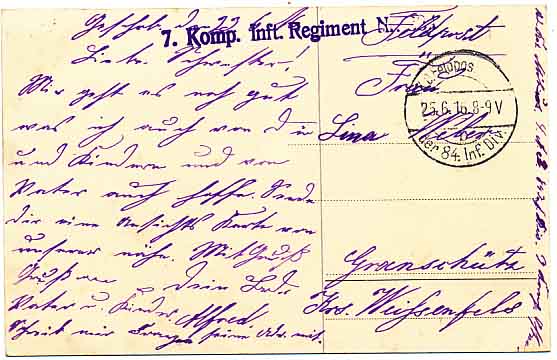 7. Komp. Inft. Regiment N.
Geschrb. den 22.
Liebe Schwester!
Mir geht es noch gut
was ich auch von Dir
und Kindern und von
Vater auch hoffe. Sende
Dir eine Ansichts Karte von
unserer nähe. Mit Gruß
Dein Bruder
Vater u. Kinder. Alfred.
Schreib mir seine Adr. mit.
Feldpost
Frau
Lina Weber
Granschütz
Krs. Weißenfels
25.6.16.8-9V
der 84. Inf. Div.